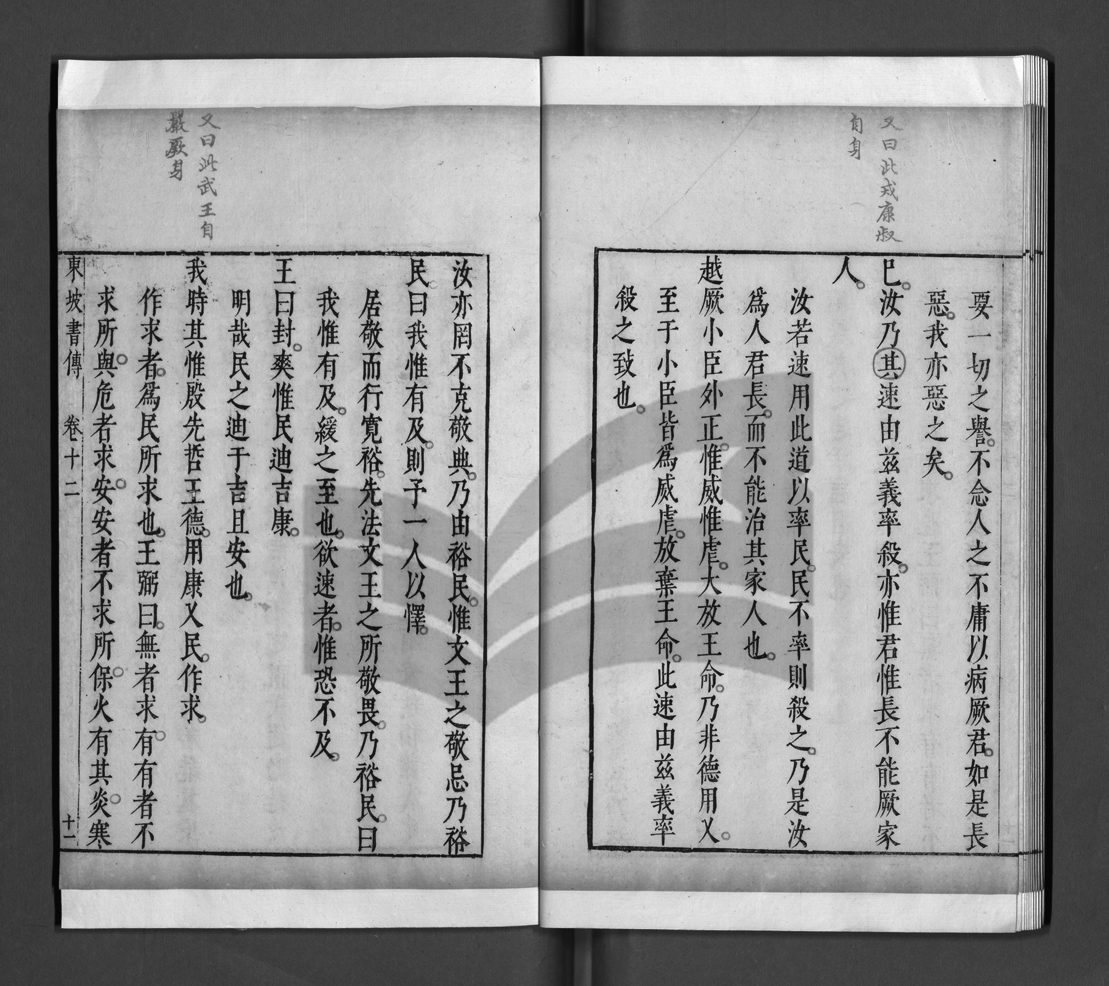 又曰此戒康叔
自身
要一切之譽。不念人之不庸以病厥君。如是長
惡。我亦惡之矣。
已。汝乃其速由茲義率殺。亦惟君惟長不能厥家
人。
汝若速用此道以率民。民不率則殺之。乃是汝
爲人君長。而不能治其家人也。
越厥小臣外正。惟威惟虐。大放王命。乃非德用乂。
至于小臣皆爲威虐。放棄王命。此速由茲義率
殺之致也。
又曰此武王自
嚴厥身
汝亦罔不克敬典。乃由裕民。惟文王之敬忌乃裕
民。曰我惟有及。則予一人以懌。
居敬而行寬裕。先法文王之所敬畏。乃裕民。曰
我惟有及。緩之至也。欲速者。惟恐不及。
王曰封。爽惟民迪吉康。
明哉民之迪于吉且安也。
我時其惟殷先哲王德。用康乂民。作求。
作求者。爲民所求也。王弼曰。無者求有。有者不
求所與。危者求安。安者不求所保。火有其炎。寒
東坡書傳 卷十二 十一